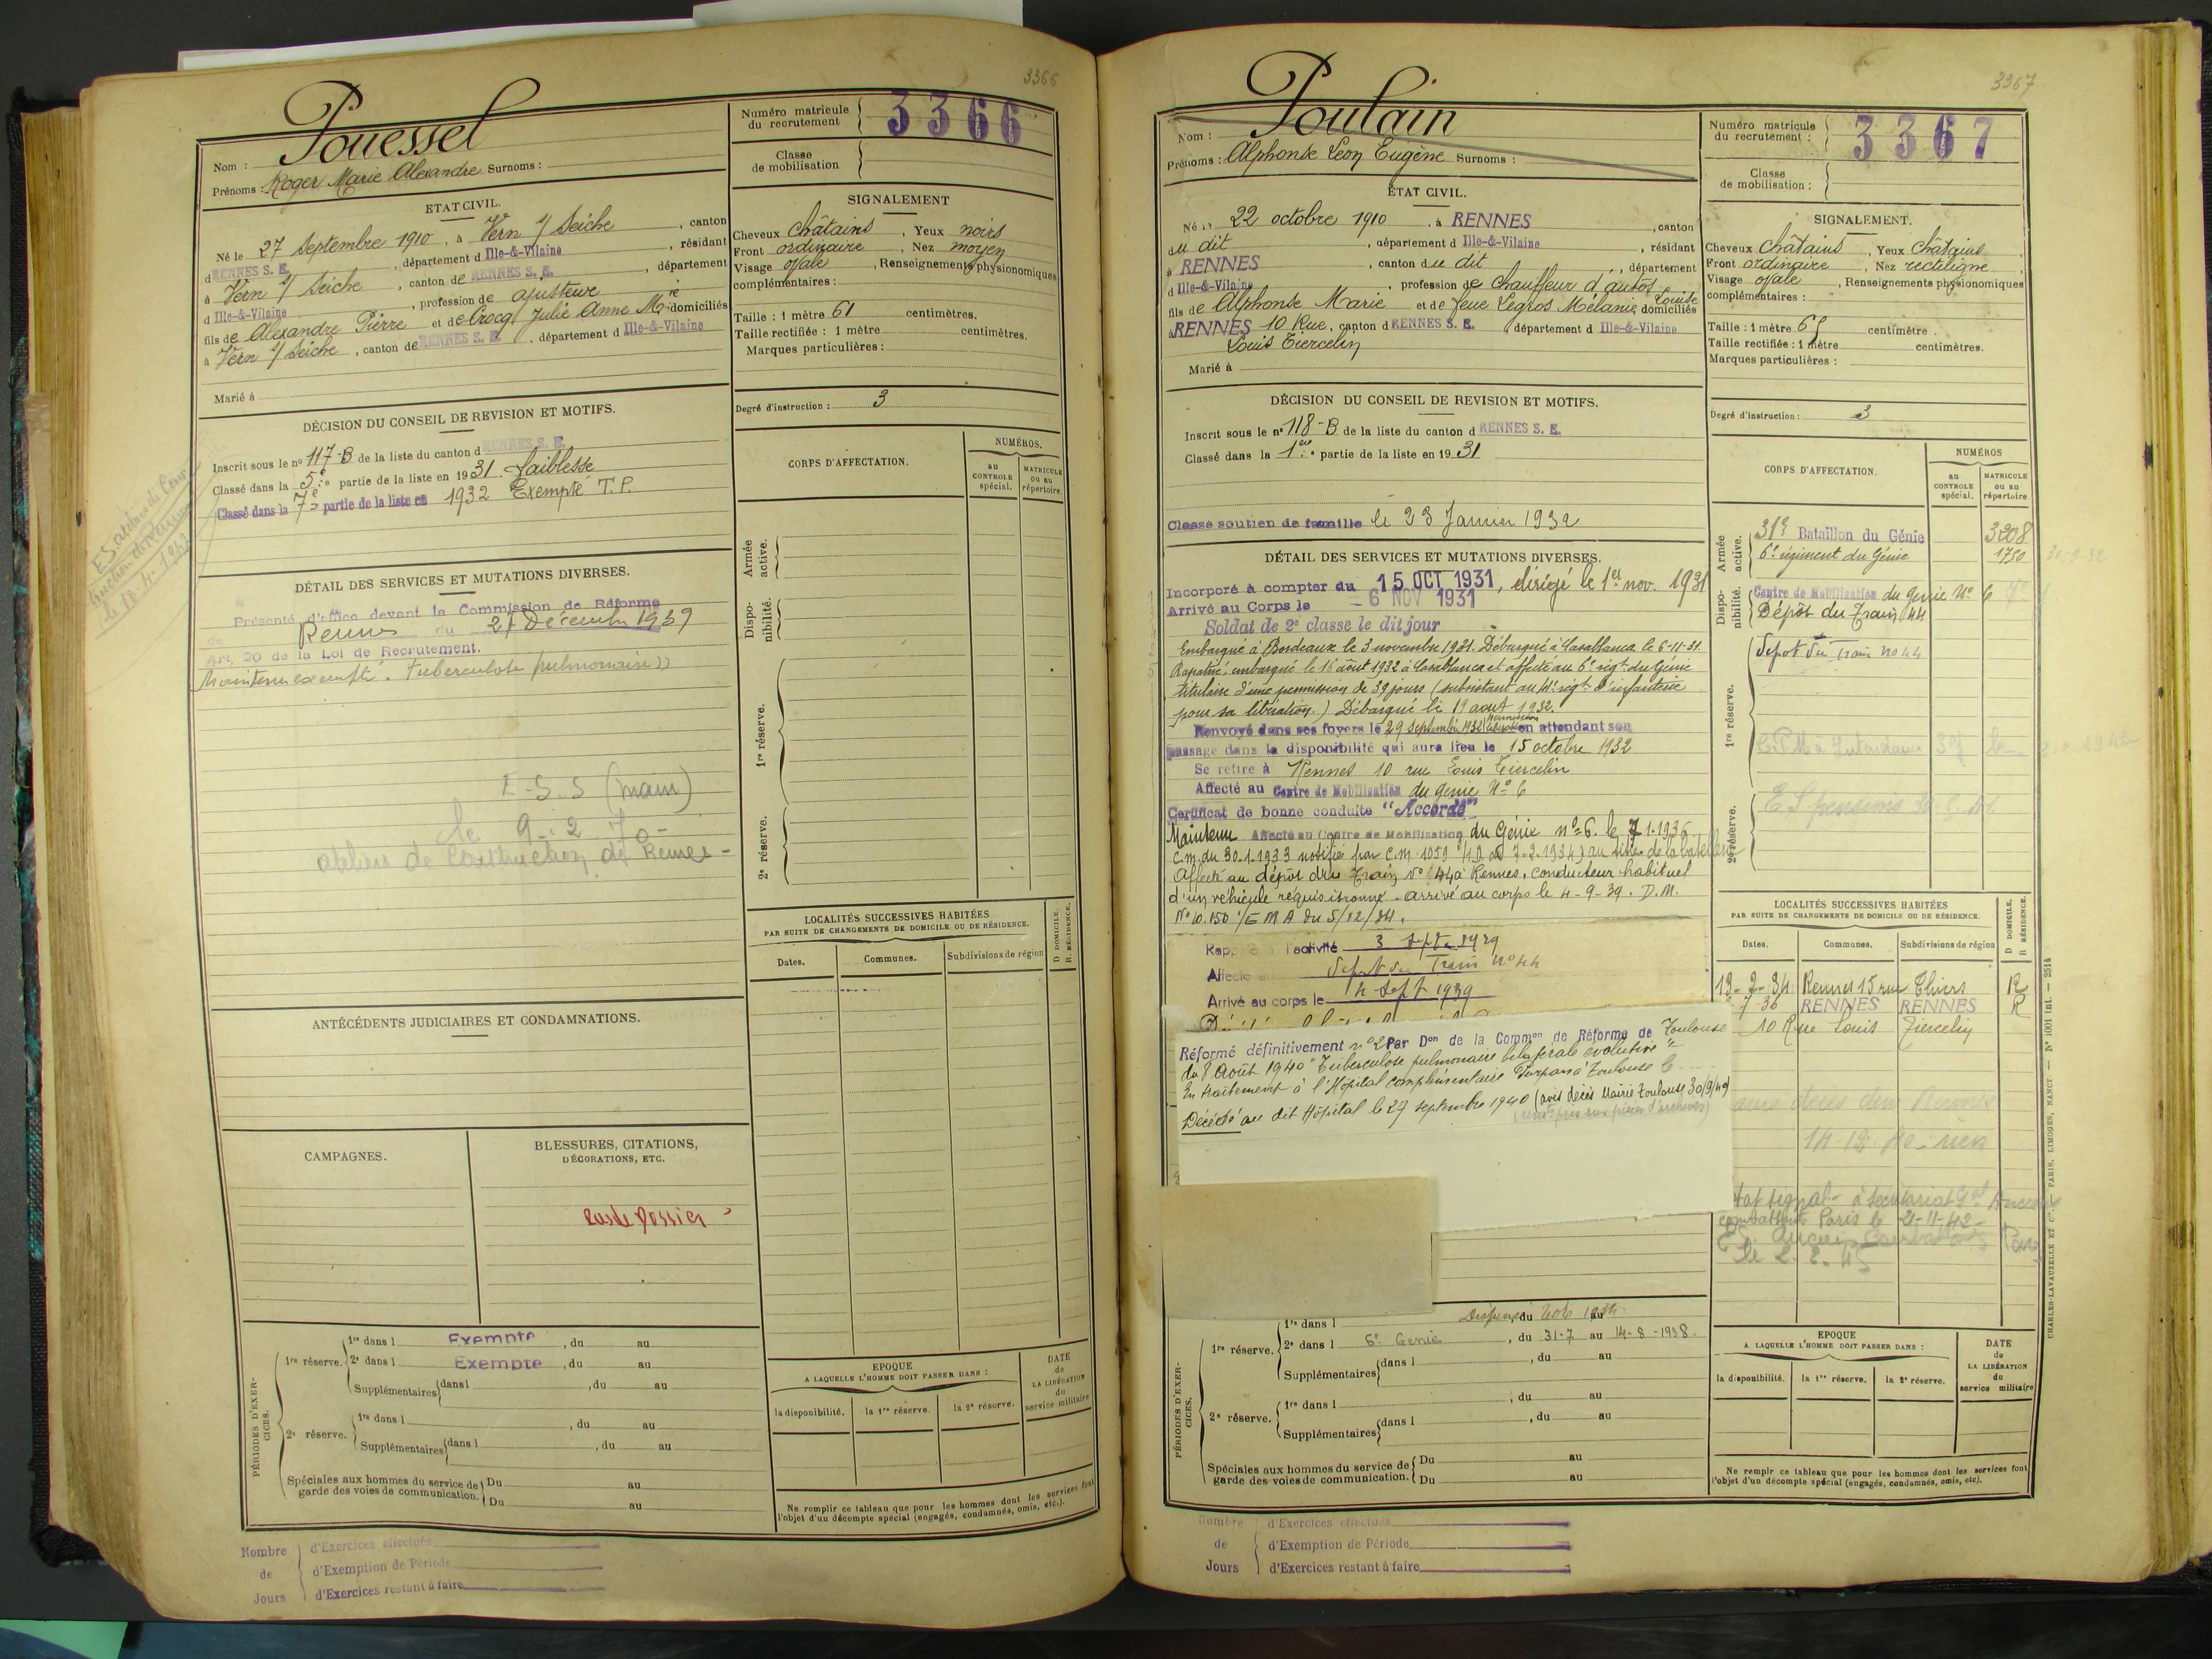 3366
Pouessel
Nom :
Prénoms : Roger Marie Alexandre Surnoms :
Numéro matricule du recrutement 3366
Classe de mobilisation
ETAT CIVIL.
Né le 27 Septembre 1910, à Vern s/ Seiche, canton
d RENNES S. E., département d Ille-&-Vilaine, résidant
à Vern s/ Seiche, canton de RENNES S. E., département
d Ille-&-Vilaine, profession de ajusteur
fils de Alexandre Pierre et de Crocq Julie Anne Mie domiciliés
à Vern s/ Seiche, canton de RENNES S. E., département d Ille-&-Vilaine
Marié à
SIGNALEMENT
Cheveux châtains, Yeux noirs
Front ordinaire, Nez moyen
Visage ovale, Renseignements physionomiques
complémentaires :
Taille : 1 mètre 61 centimètres.
Taille rectifiée : 1 mètre centimètres.
Marques particulières :
Degré d'instruction : 3
DÉCISION DU CONSEIL DE REVISION ET MOTIFS.
Inscrit sous le nº 117-B de la liste du canton d RENNES S. E.
Classé dans la 5e partie de la liste en 1931 faiblesse
Classé dans la 7e partie de la liste en 1932 Exempté T.P.
DÉTAIL DES SERVICES ET MUTATIONS DIVERSES.
Présenté d'office devant la Commission de Réforme
de Rennes du 21 Décembre 1939
Art. 20 de la Loi de Recrutement.
Maintenu exempté. tuberculose pulmonaire
E-S.S (mam)
le 9-2 70-
ateliers de Construction de Rennes -
CORPS D'AFFECTATION.
NUMÉROS.
au CONTROLE spécial.
MATRICULE ou au répertoire.
Armée active.
Disponibilité.
1re réserve.
2e réserve.
LOCALITÉS SUCCESSIVES HABITÉES
PAR SUITE DE CHANGEMENTS DE DOMICILE OU DE RÉSIDENCE.
Dates.
Communes.
Subdivisions de région
D DOMICILE.
R RÉSIDENCE.
ANTÉCÉDENTS JUDICIAIRES ET CONDAMNATIONS.
CAMPAGNES.
BLESSURES, CITATIONS,
DÉCORATIONS, ETC.
Dossier
PÉRIODES D'EXERCICES.
1re réserve. 1re dans l Exempté, du au
2e dans l Exempté, du au
Supplémentaires dans l, du au
2e réserve. 1re dans l, du au
Supplémentaires dans l, du au
Spéciales aux hommes du service de garde des voies de communication. Du au
Du au
EPOQUE
A LAQUELLE L'HOMME DOIT PASSER DANS :
la disponibilité.
la 1re réserve.
la 2e réserve.
DATE de LA LIBÉRATION du service militaire
Ne remplir ce tableau que pour les hommes dont les services font
l'objet d'un décompte spécial (engagés, condamnés, omis, etc.).
Nombre de Jours
d'Exercices effectués
d'Exemption de Période
d'Exercices restant à faire
3367
Poulain
Nom :
Prénoms : Alphonse Léon Eugène Surnoms :
Numéro matricule du recrutement : 3367
Classe de mobilisation :
ÉTAT CIVIL.
Né le 22 octobre 1910, à RENNES, canton
du dit, département d Ille-&-Vilaine, résidant
à RENNES, canton du dit, département
d Ille-&-Vilaine, profession de chauffeur d'autos
fils de Alphonse Marie et de feue Legros Mélanie Louise domiciliés
RENNES 10 Rue, canton d RENNES S. E. département d Ille-&-Vilaine
Louis Tiercelin
Marié à
SIGNALEMENT.
Cheveux châtains, Yeux châtains
Front ordinaire, Nez rectiligne
Visage ovale, Renseignements physionomiques
complémentaires :
Taille : 1 mètre 65 centimètre.
Taille rectifiée : 1 mètre centimètres.
Marques particulières :
Degré d'instruction : 3
DÉCISION DU CONSEIL DE REVISION ET MOTIFS.
Inscrit sous le nº 118-B de la liste du canton d RENNES S. E.
Classé dans la 1ere partie de la liste en 1931
Classe soutien de famille le 23 Janvier 1932
DÉTAIL DES SERVICES ET MUTATIONS DIVERSES.
Incorporé à compter du 15 OCT 1931, dirigé le 1er nov. 1931
Arrivé au Corps le - 6 NOV 1931
Soldat de 2e classe le dit jour
Embarqué à Bordeaux le 3 novembre 1931. Débarqué à Casablanca le 6-11-31.
Rapatrié, embarqué le 16 août 1932 à Casablanca et affecté au 6e régt du Génie
titulaire d'une permission de 39 jours (subsistant au 41e régt d'infanterie
pour sa libération.) Débarqué le 19 août 1932.
Renvoyé dans ses foyers le 29 septembre 1932 permission en attendant son
passage dans la disponibilité qui aura lieu le 15 octobre 1932
Se retire à Rennes 10 rue Louis Tiercelin
Affecté au Centre de Mobilisation du génie Nº 6
Certificat de bonne conduite "Accordé"
Maintenu Affecté au Centre de Mobilisation du Génie nº 6. le 7.1.1936
C.M. du 30.1.1933 notifiée par C.M. 1059 au titre de la
Affecté au dépôt du Train Nº 44 à Rennes, conducteur habituel
d'un véhicule réquisitionné. arrivé au corps le 4-9-39. D.M.
Nº 10.150 /E M A du 5/12/34.
Rappelé à l'activité 3 Septe 1939
Affecté au Dépôt du Train nº 44
Arrivé au corps le 4 Sept 1939
Réformé définitivement nº 2 Par Don de la Common de Réforme de Toulouse
du 8 Août 1940 "Tuberculose pulmonaire bilatérale évolutive"
En traitement à l'Hôpital complémentaire Purpan à Toulouse le
Décédé au dit Hôpital le 27 septembre 1940 (avis décès Mairie Toulouse 30/9/40)
CORPS D'AFFECTATION.
NUMÉROS
au CONTROLE spécial.
MATRICULE ou au répertoire
Armée active.
31e Bataillon du Génie 3208
6e régiment du Génie 1750
Disponibilité.
Centre de Mobilisation du génie Nº 6
Dépôt du Train 44
1re réserve.
Dépot du train no 44
2e réserve.
E S pensions
LOCALITÉS SUCCESSIVES HABITÉES
PAR SUITE DE CHANGEMENTS DE DOMICILE OU DE RÉSIDENCE.
Dates.
Communes.
Subdivisions de région
D DOMICILE.
R RÉSIDENCE.
19-2-34 Rennes 15 rue Thiers R
7-36 RENNES RENNES R
10 Rue Louis Tiercelin
avis décès
14 12 40 - rien
à Secrétariat Gal Anciens
combattants Paris le 21-11-42-
PÉRIODES D'EXERCICES.
1re réserve. 1re dans l Dispensé du au
2e dans l 6e Génie, du 31-7 au 14-8-1938.
Supplémentaires dans l, du au
, du au
2e réserve. 1re dans l, du au
Supplémentaires dans l, du au
Spéciales aux hommes du service de garde des voies de communication. Du au
Du au
EPOQUE
A LAQUELLE L'HOMME DOIT PASSER DANS :
la disponibilité.
la 1re réserve.
la 2e réserve.
DATE de LA LIBÉRATION du service militaire
Ne remplir ce tableau que pour les hommes dont les services font
l'objet d'un décompte spécial (engagés, condamnés, omis, etc).
CHARLES-LAVAUZELLE ET Cie, PARIS, LIMOGES, NANCY — Nº 1001 int. — 2514
Nombre de Jours
d'Exercices effectués
d'Exemption de Période
d'Exercices restant à faire